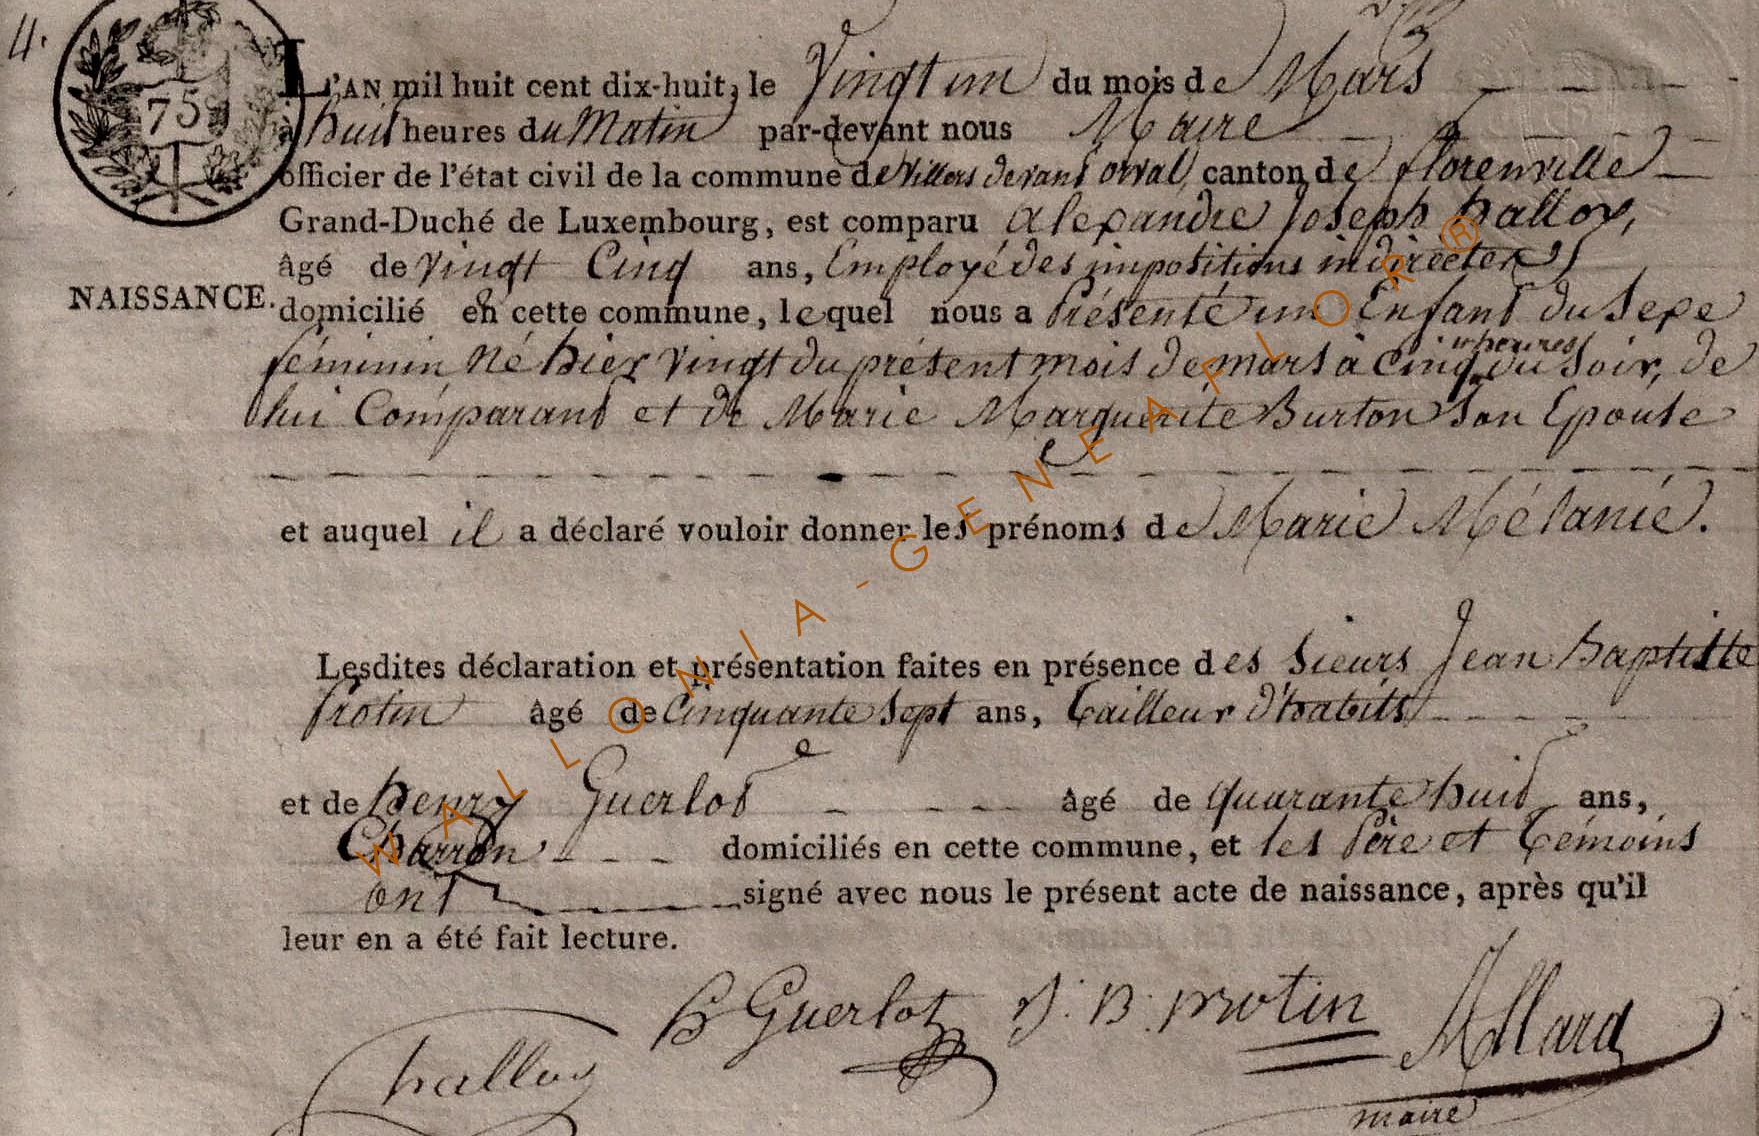 4.
75
L'AN mil huit cent dix-huit, le Vingt un du mois de Mars
à huit heures du Matin par-devant nous Maire
officier de l'état civil de la commune de Villers devant orval, canton de florenville
Grand-Duché de Luxembourg, est comparu alexandre Joseph halloy,
âgé de vingt Cinq ans, Employé des impositions indirectes
NAISSANCE. domicilié en cette commune, lequel nous a Présenté un Enfant du Sexe
féminin Né hier vingt du présent mois de mars à cinq heures du Soir, de
lui Comparant et de Marie Marguerite Burton Son Epouse
et auquel il a déclaré vouloir donner les prénoms de Marie Mélanie.
Lesdites déclaration et présentation faites en présence des Sieurs Jean Baptiste
Protin âgé de Cinquante Sept ans, tailleur d'habits
et de henry Guerlot âgé de quarante huit ans,
Charron domiciliés en cette commune, et les Père et témoins
ont signé avec nous le présent acte de naissance, après qu'il
leur en a été fait lecture.
halloy H Guerlot J. B. protin Allard
maire
WALLONIA-GENEAFLOR ®